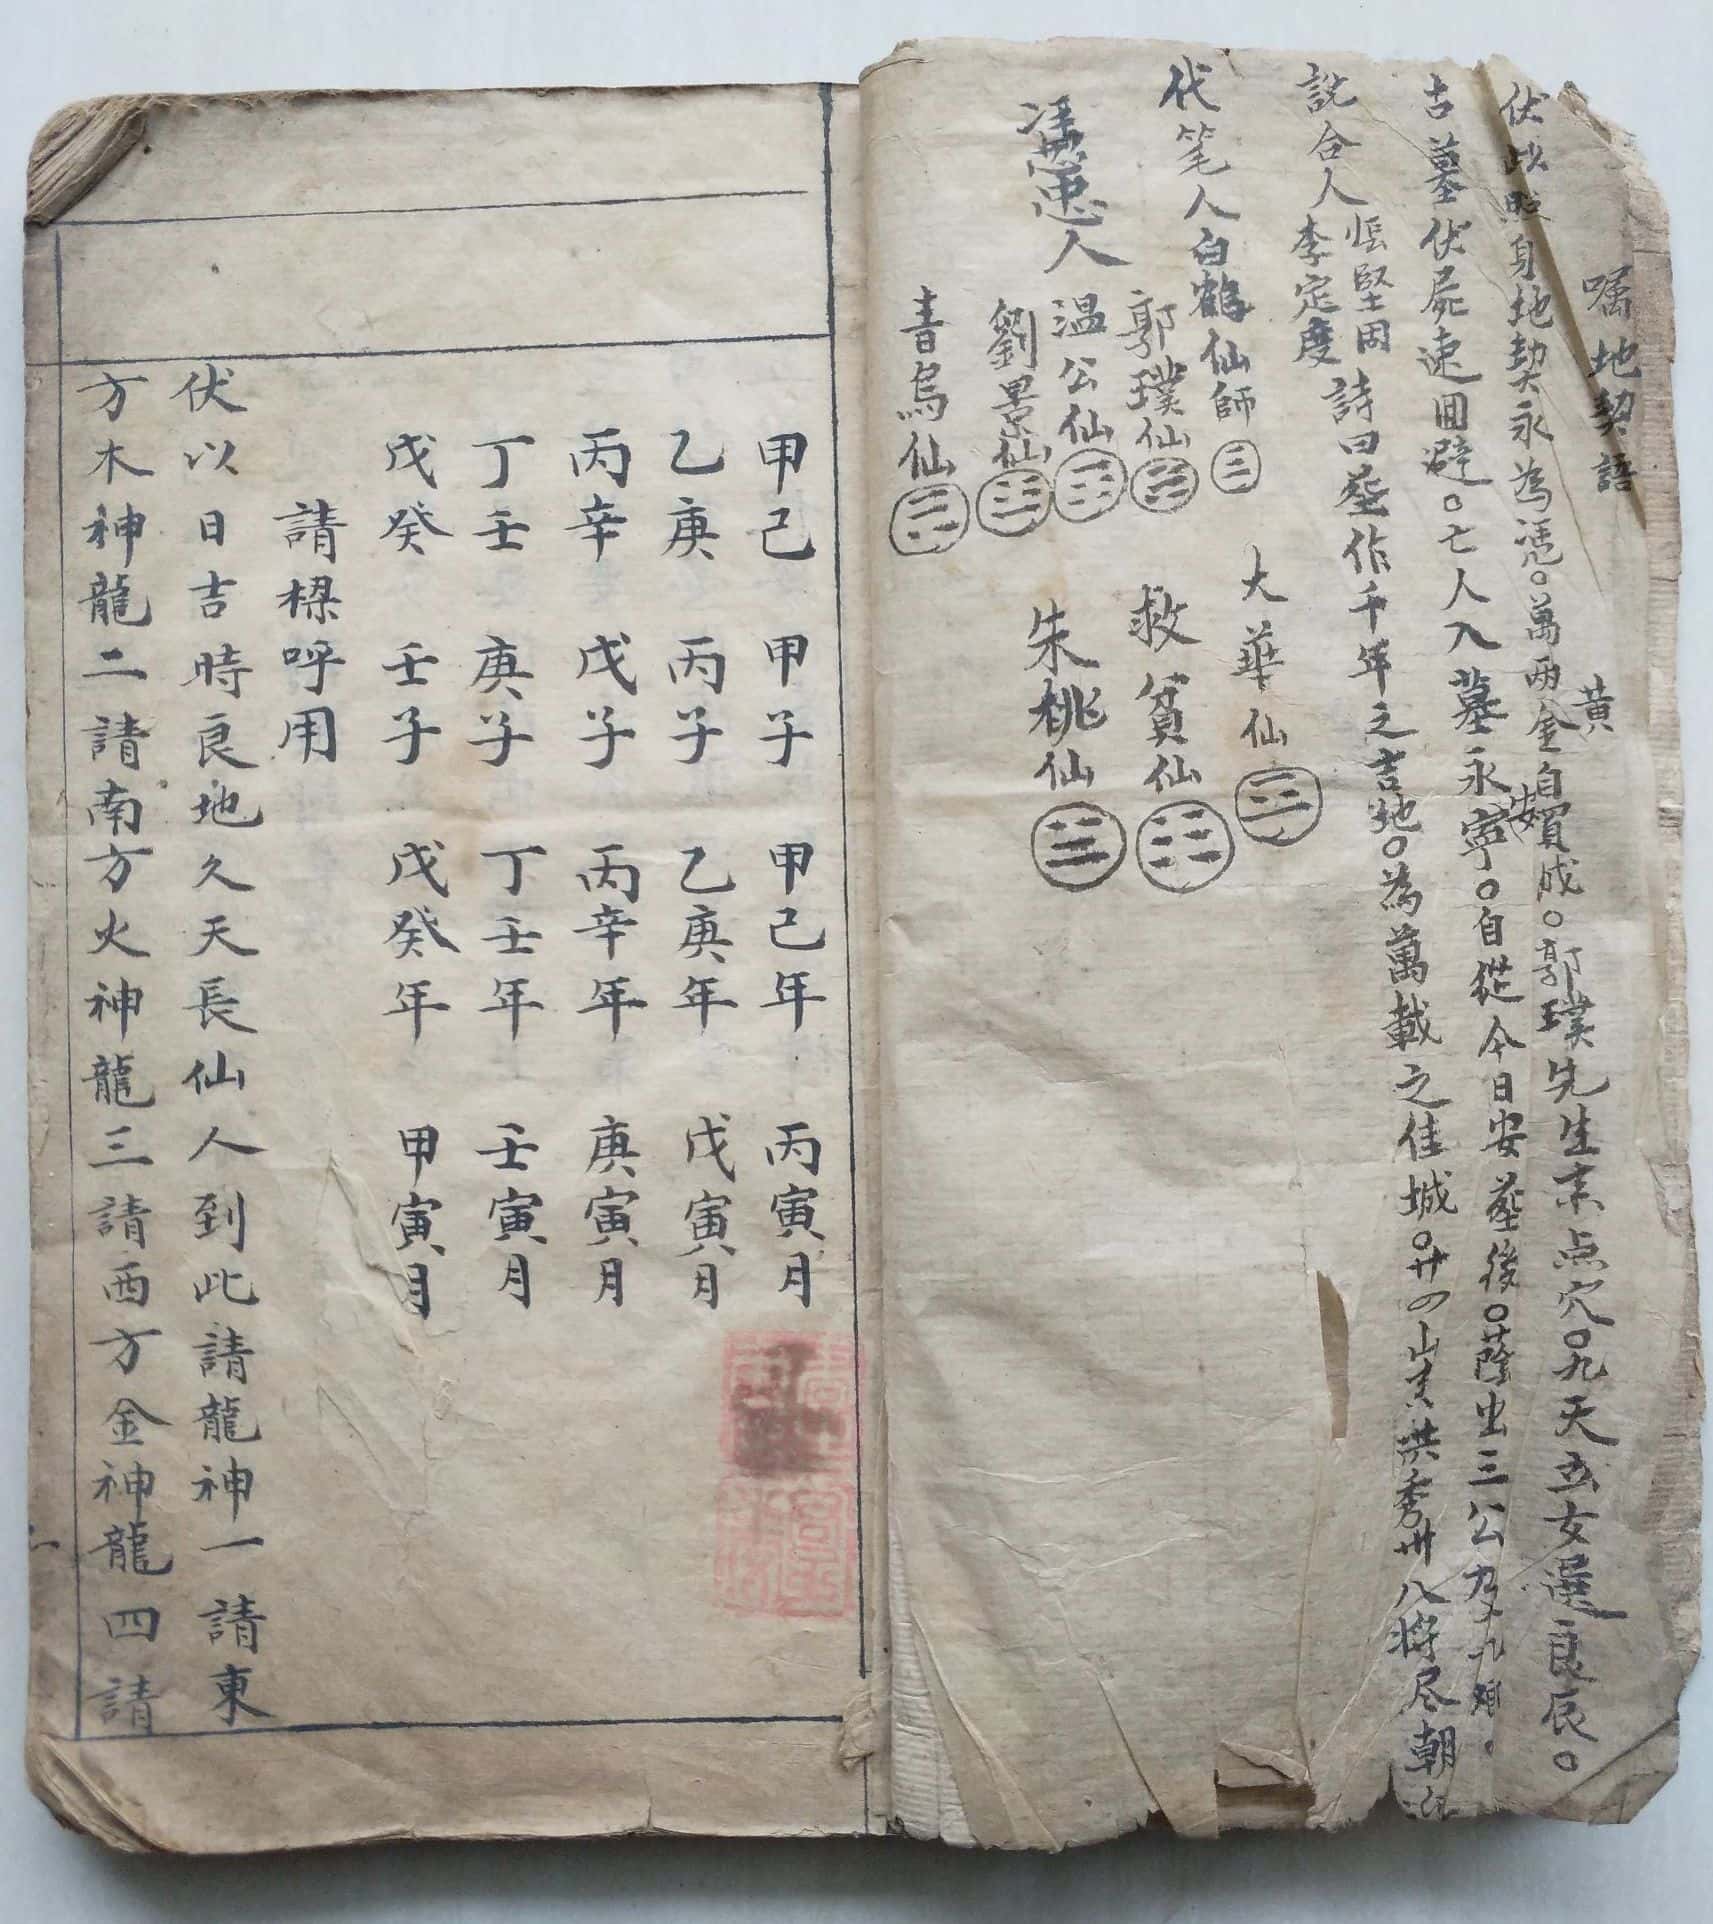 嘱地契語
伏以照身地契永為憑。萬兩金自買成。郭璞先生來点穴。九天玄女選良辰。
黃
古墓伏屍速回避。亡人入墓永寧。自從今日安葬後。蔭出三公
安
説合人
張堅固
李定度
詩曰葬作千年之吉地。為萬載之佳城。廿四山洪秀廿八將尽朝
代笔人白鶴仙師
大華仙
憑忠人
郭璞仙
救貧仙
温公仙
朱桃仙
劉景仙
青烏仙
甲己 甲子 甲己年 丙寅月
乙庚 丙子 乙庚年 戊寅月
丙辛 戊子 丙辛年 庚寅月
丁壬 庚子 丁壬年 壬寅月
戊癸 壬子 戊癸年 甲寅月
請樑呼用
伏以日吉時良地久天長仙人到此請龍神一請東
方木神龍二請南方火神龍三請西方金神龍四請